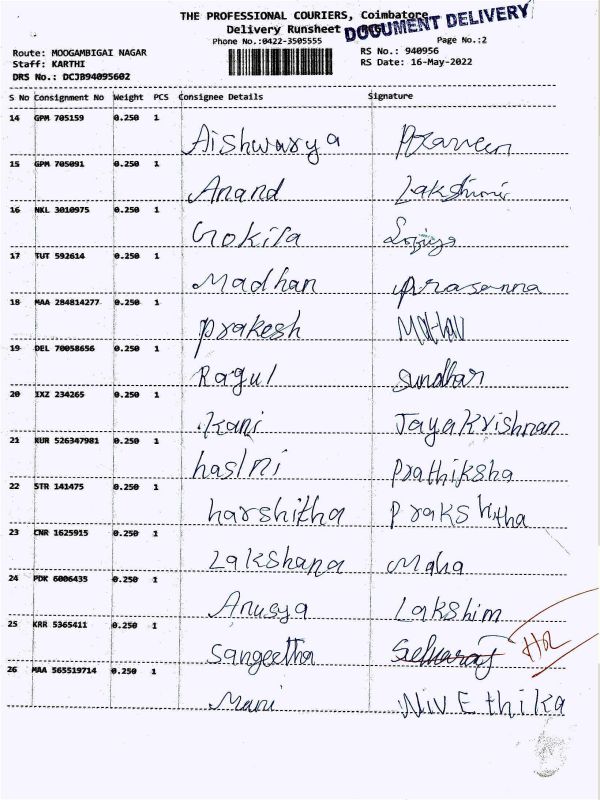 THE PROFESSIONAL COURIERS, Coimbatore
Delivery Runsheet
DOCUMENT DELIVERY
Phone No.:0422-3505555 Page No.:2
Route: MOOGAMBIGAI NAGAR RS No.: 940956
Staff: KARTHI RS Date: 16-May-2022
DRS No.: DCJB94095602
S No Consignment No Weight PCS Consignee Details Signature
14 GPM 705159 0.250 1 Aishwarya Praveen
15 GPM 705091 0.250 1 Anand Lakshmi
16 NKL 3010975 0.250 1 Gokila
17 TUT 592614 0.250 1 Madhan prasanna
18 MAA 284814277 0.250 1 prakesh
19 DEL 70058656 0.250 1 Ragul Sundhar
20 IXZ 234265 0.250 1 Kani JayaKrishnan
21 KUR 526347981 0.250 1 haslni Prathiksha
22 STR 141475 0.250 1 harshitha Prakshitha
23 CNR 1625915 0.250 1 Lakshana Maha
24 PDK 6006435 0.250 1 Anusya Lakshim
25 KRR 5365411 0.250 1 Sangeetha Selvaraj HR
26 MAA 565519714 0.250 1 Mani NivEthika